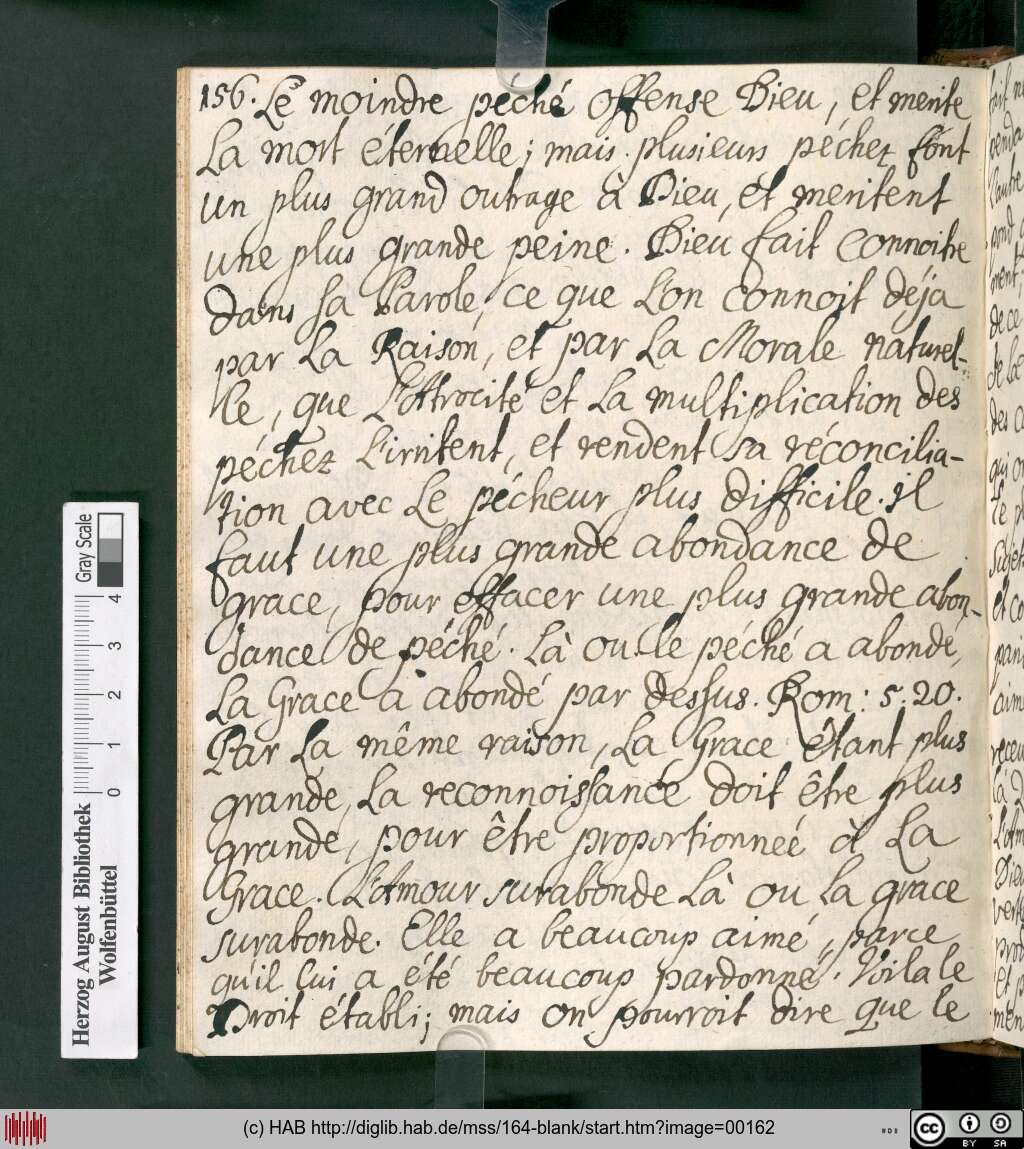 156. Le moindre péché offense Dieu, et merite
La mort éternelle; mais plusieurs péchez font
un plus grand outrage à Dieu, et meritent
une plus grande peine. Dieu fait connoitre
dans sa Parole, ce que L'on connoit déja
par La Raison, et par La Morale naturel-
le, que L'Atrocité et La multiplication des
péchez L'irritent, et rendent sa réconcilia-
tion avec Le pécheur plus difficile. Il
faut une plus grande abondance de
grace, pour effacer une plus grande abon-
dance de péché. Là ou le péché a abondé,
La Grace a abondé par dessus. Rom: 5.20.
Par La même raison, La Grace êtant plus
grande, La reconnoissance doit être plus
grande, pour être proportionneé à La
Grace. L'Amour surabonde Là ou La grace
surabonde. Elle a beaucoup aimé, parce
qu'il lui a été beaucoup pardonné. Voila le
Droit établi; mais on pourroit dire que le
Gray Scale
0 1 2 3 4
Herzog August Bibliothek
Wolfenbüttel
(c) HAB http://diglib.hab.de/mss/164-blank/start.htm?image=00162
CC BY SA